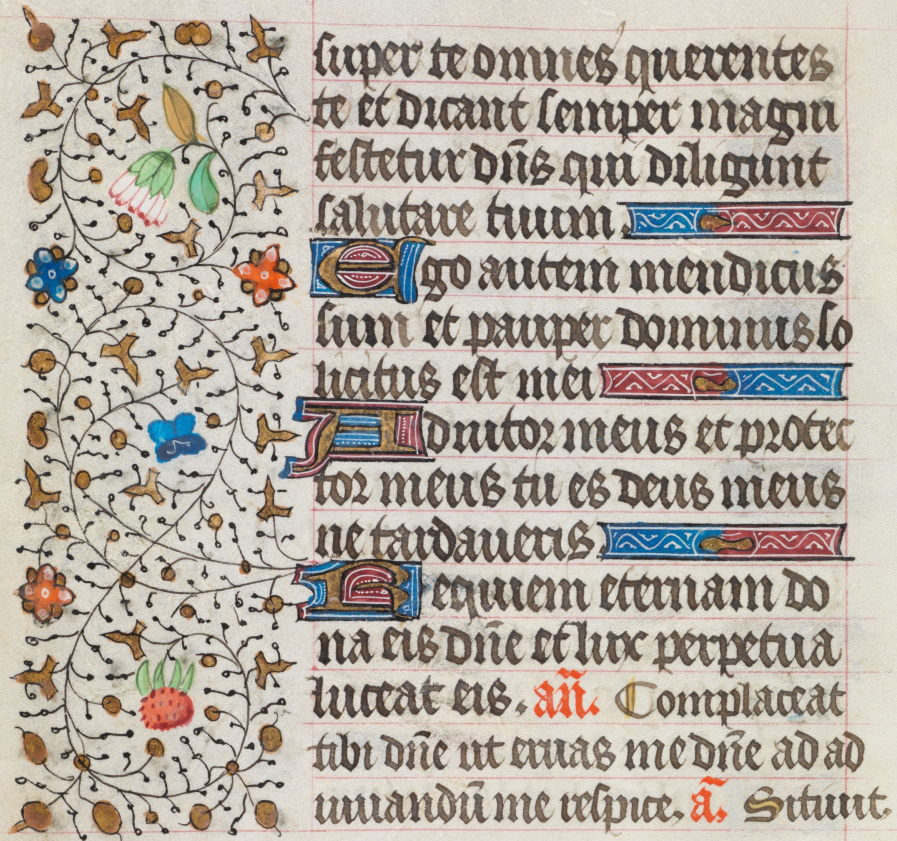 super te omnes querentes
te et dicant semper magni
festetur dn̄s qui diligunt
salutare tuum
Ego autem mendicus
sum et pauper dominus so
licitus est mei
Adiutor meus et protec
tor meus tu es deus meus
ne tardaueris
Requiem eternam do
na eis dn̄e et lux perpetua
luceat eis. an̄. Complaceat
tibi dn̄e ut eruas me dn̄e ad ad
iuuandū me respice. ā. Sitiuit.